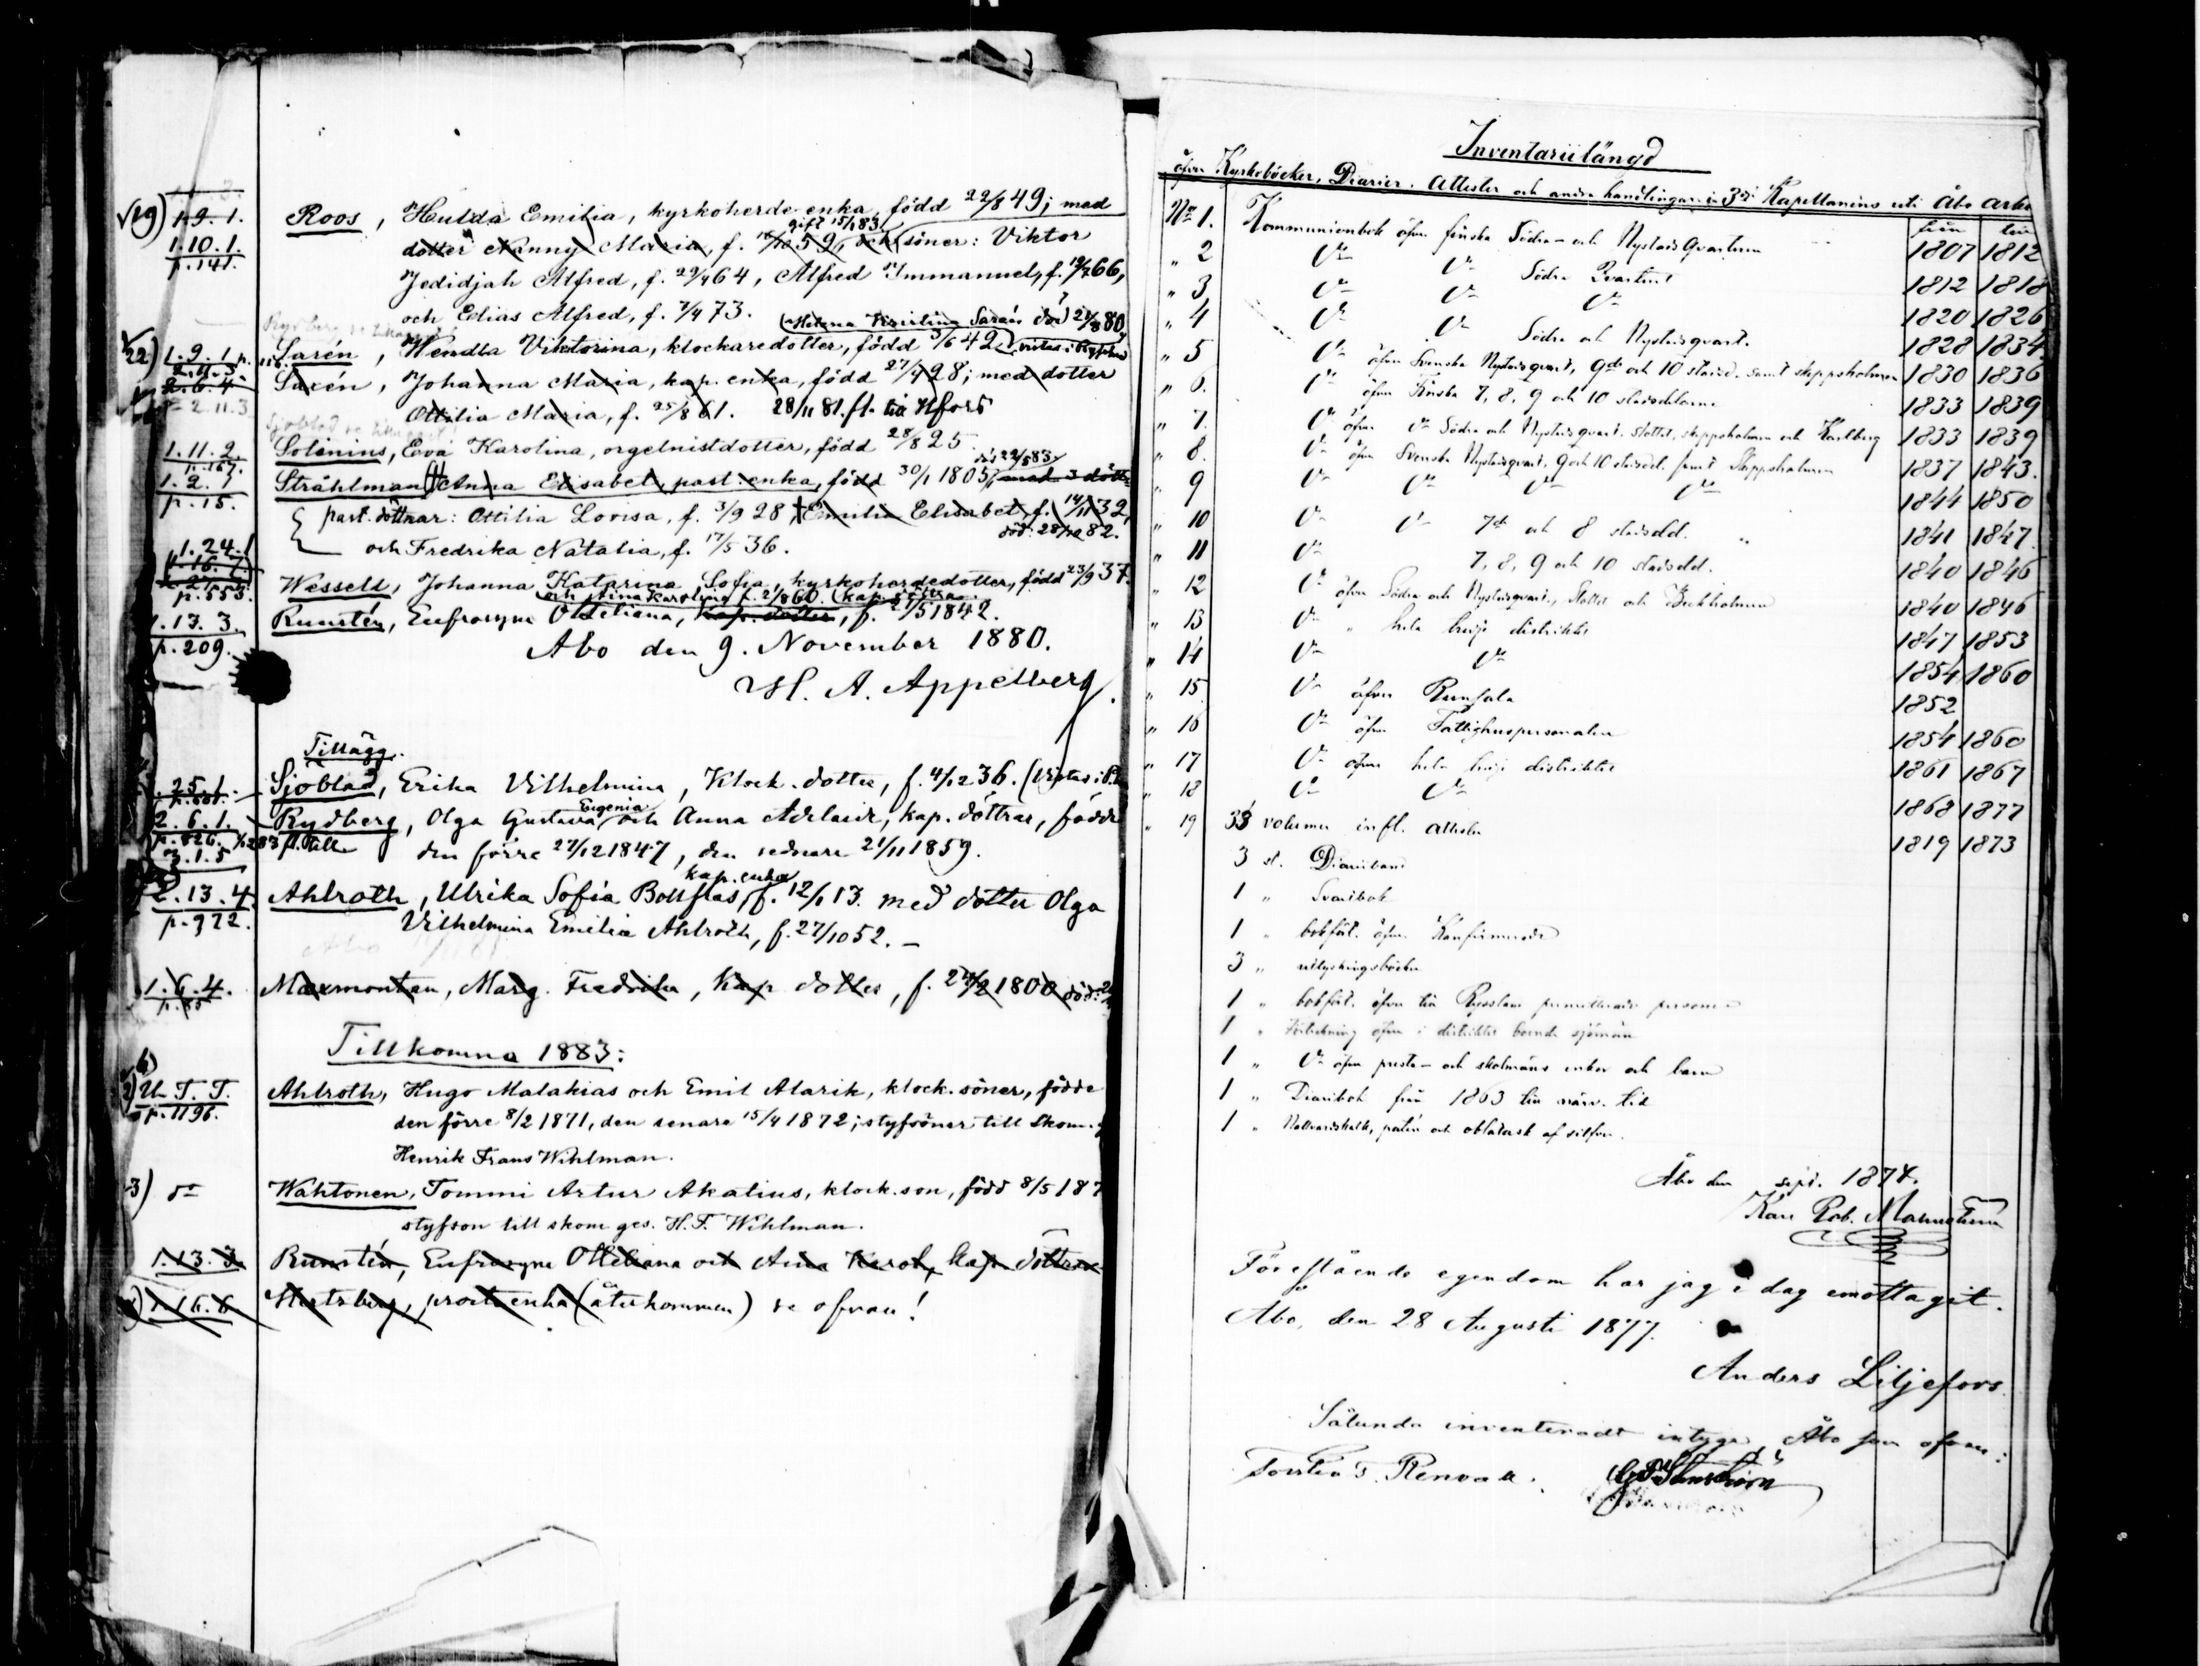 √19) 1.9.1. Roos, Hulda Emilia, kyrkoherde enka, född 22/8 49; med
gift 15/1 83.
1.10.1. dotter Nanny Maria, f. 59, och söner: Viktor
p. 141. Jedidjah Alfred, f. 29/4 64, Alfred Immanuel, f. 19/7 66,
och Edias Alfred, f. 7/4 73.
Helena död 80
22) 1.9.1 p. Sarén, Wendla Viktorina, klockaredotter, född 3/6 42
2.6.4 Saxén, Johanna Maria, kap. enka, född 27/4 28; med dotter
2.11.3 Ottilia Maria, f. 25/8 61. 28/11 81. fl. till Hfors
1.11.2. Solenius, Eva Karolina, orgelnistdotter, född 28/8 25.
p. 167.
död 22/5 83.
1.2.7 Stråhlman, Anna Elisabet, past. enka, född 30/1 1805, med 3 döttr.
p. 15. past. döttrar: Ottilia Lovisa, f. 3/9 28, Emilia Elisabet, f. 14/11 32,
död 28/10 82.
och Fredrika Natalia, f. 17/5 36.
1.24.1
1.16.7.
p. 553. Wessell, Johanna Katarina Sofia, kyrkoherdedotter, född 23/9 37.
och Aina Karolina f. 2/8 60. (kap. döttrar.
1.13.3. Runstén, Eufrosyne Otteliana, kap. dotter, f. 27/5 1842.
p. 209.
Åbo den 9. November 1880.
H. A. Appelberg.
Tillägg.
1.25.1. Sjöblad, Erika Vilhelmina, Klock. dotter, f. 4/12 36.
Eugenia
2.6.1. Rydberg, Olga Gustava och Anna Adelaide, kap. döttrar, födde
p. 826. fl. till den förre 27/12 1847, den sednare 21/11 1859.
3.1.5
kap. enka
2.13.4. Ahlroth, Ulrika Sofia f. 12/1 13. med dotter Olga
p. 972. Vilhelmina Emilia Ahlroth, f. 27/10 52. –
1.6.4. Maxmontan, Marg. Fredrika, Kap dotter, f. 24/2 1800 död:
p. 85
Tillkomna 1883:
2) U. T. T. Ahlroth, Hugo Malakias och Emil Alarik, klock. söner, födde
p. 1196. den förre 8/2 1871, den senare 15/4 1872; styfsöner till Skom. g
Henrik Frans Wihlman.
3) do Wahtonen, Tommi Artur Akatius, klock. son, född 8/5 187
styfson till skom ges. H. F. Wihlman.
1.13.3. Runstén, Eufrosyne Otteliana och Aina Karol, kap döttrar
1.16.6 Hertzberg, prosts enka (återkommen) se ofvan!
Inventariilängd
öfver Kyrkoböcker, Diarier, Attester och andra handlingar i 3dje Kapellanens uti Åbo arkiv
No 1. Kommunionbok öfver finska Södra- och Nystads Qvarteren från 1807 till 1812
" 2 Do Do Södra Qvarteret 1812 1818
" 3 Do Do Do 1820 1826
" 4 Do Do Södra och Nystadsqvart. 1828 1834
" 5 Do öfver Svenska Nystadsqvart, 9de och 10 stadsd. samt skeppsholmen 1830 1836
" 6. Do öfver Finska 7, 8, 9 och 10 stadsdelarne 1833 1839
" 7. Do öfver Do Södra och Nystadsqvart. slottet, skeppsholmen och Karlberg 1833 1839
" 8. Do öfver Svenska Nystadsqvart, 9 och 10 stadsdel. samt Skeppsholmen 1837 1843.
" 9 Do Do Do Do 1844 1850
" 10 Do Do 7de och 8 stadsdel. " 1841 1847
" 11 Do 7, 8, 9 och 10 stadsdel. 1840 1846
" 12 Do öfver Södra och Nystadsqvart., Slottet och Beckholmen 1840 1846
" 13 Do " hela distriktet 1847 1853
" 14 Do Do 1854 1860
" 15 Do öfver Runsala 1852
" 16 Do öfver Fattighuspersonalen 1854 1860
" 17 Do öfver hela distriktet 1861 1867
" 18 Do Do 1868 1877
" 19 33 volumer infl. attester 1819 1873
3 st. Diariiband
1 " Svarsbok
1 " bokföt. öfver Konfirmerade
3 " utlysningsböcker
1 " bokföt. öfver till Ryssland permitterade personer
1 " Förteckning öfver i distriktet boende sjömän
1 " Do öfver prests- och skolmäns enkor och barn
1 " Diariibok från 1863 till närv. tid
1 " Nattvardskalk, patén och oblatask af silfver.
Åbo den sept. 1874.
Karl Rob. Malmström
Förestående egendom har jag i dag emottagit.
Åbo, den 28 Augusti 1877.
Anders Liljefors.
Sålunda inventeradt intyga, Åbo som ofvan:
Torsten T. Renvall.